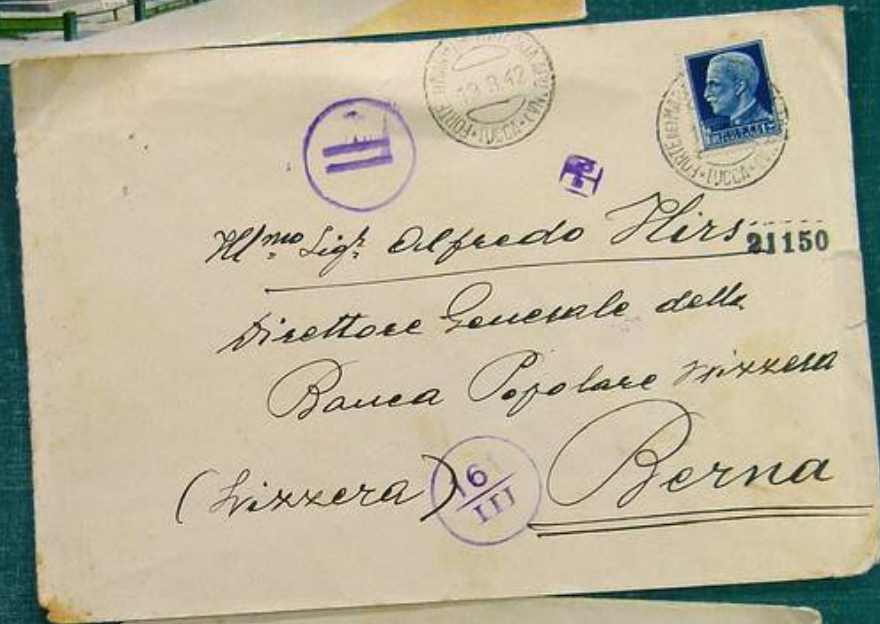 FORTE DEI MARMI
19.3.42
LUCCA
FORTE DEI MARMI
LUCCA
Ill.mo Sigr. Alfredo Hirs
21150
Direttore Generale della
Banca Popolare Svizzera
(Svizzera)
16
III
Berna